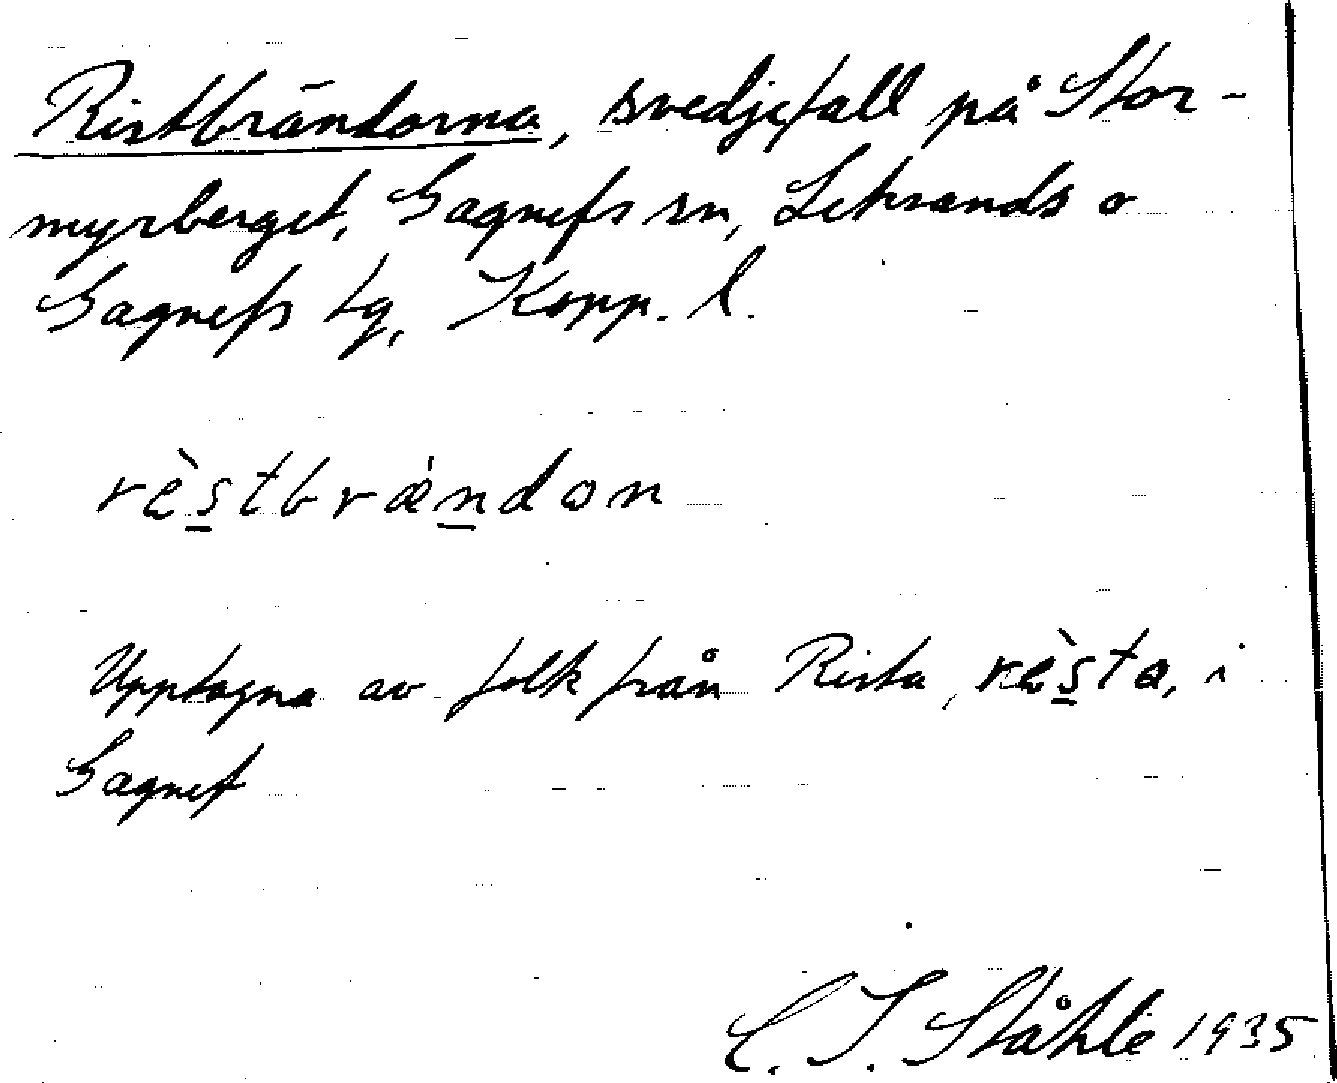 Ristbrändorna, svedjefall på Stor-
myrberget, Gagnefs sn, Leksands o
Gagnefs tg, Kopp. l.
rè̱stbrǽṉdon
Upptagna av folk från Rista, rès̱ta, i
Gagnef
C. I. Ståhle 1935